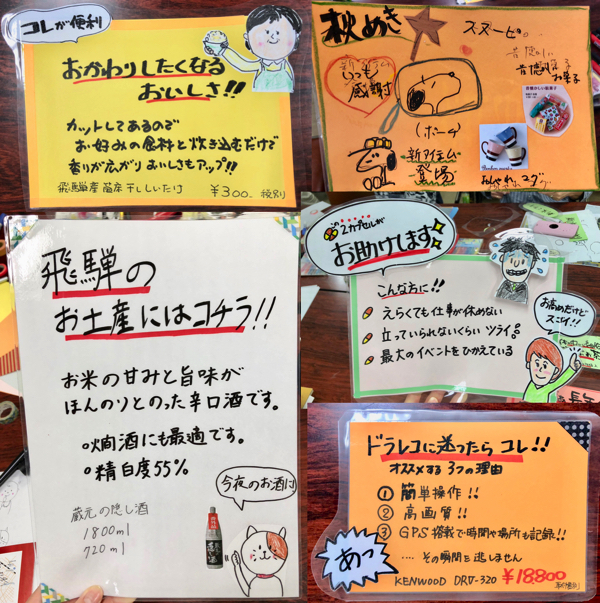 コレが便利
おかわりしたくなる
おいしさ!!
カットしてあるので
お好みの食料と炊き込むだけで
香りが広がりおいしさもアップ!!
飛騨産 菌床 干ししいたけ
¥300- 税別
秋めき
スヌーピー。
新
いつも
感謝
昔懐かしい
お菓子
(ホーム)
新アイテム
登場
飛騨の
お土産にはコチラ!!
お米の甘みと旨味が
ほんのりとのった辛口酒です。
○燗酒にも最適です。
○精白度55%
蔵元の隠し酒
1800ml
720ml
今夜のお酒は
この
2カプセルが
お助けします
こんな方に!!
えらくても仕事が休めない
立っていられないくらいツライ。
最大のイベントをひかえている
お高めだけど
スゴイ!!
ドラレコに迷ったらコレ!!
オススメする3つの理由
① 簡単操作!!
② 高画質!!
③ GPS搭載で時間や場所も記録!!
‥‥ その瞬間を逃しません
あっ
KENWOOD DRV-320
¥18800